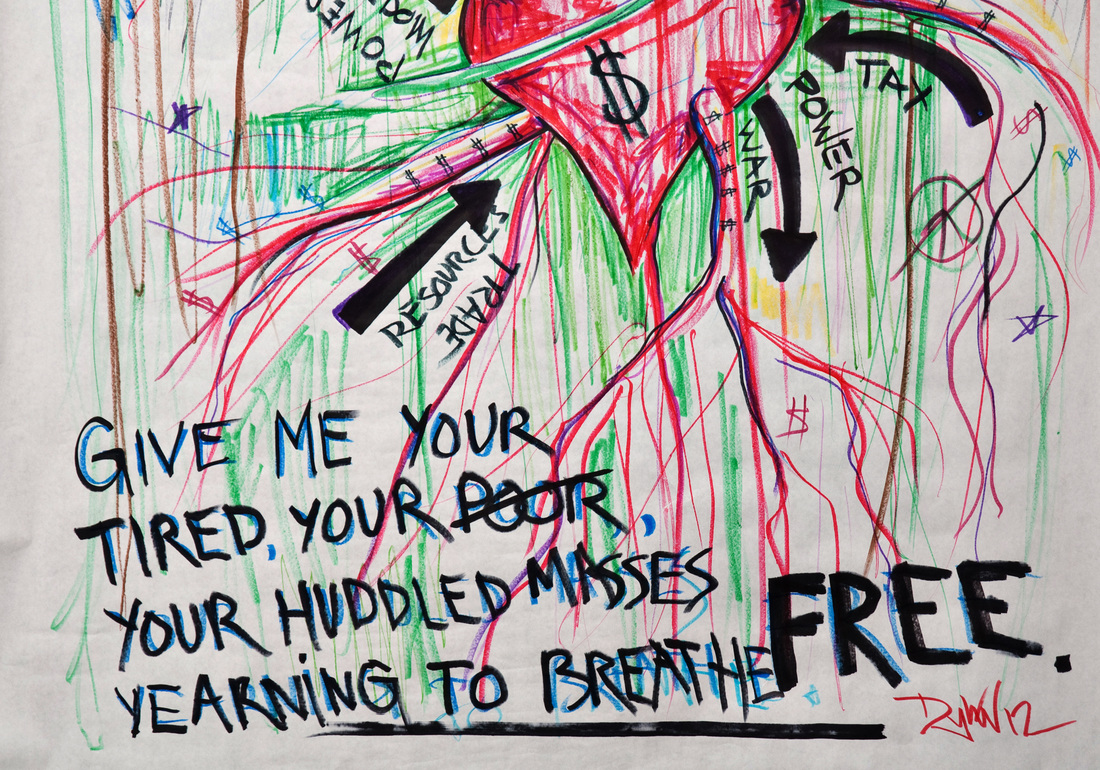 POWE
DOM
$
TAX
POWER
WAR
$ $ $ $
$ $ $ $
RESOURCES
TRADE
GIVE ME YOUR
TIRED, YOUR POOR,
YOUR HUDDLED MASSES
YEARNING TO BREATHE FREE.